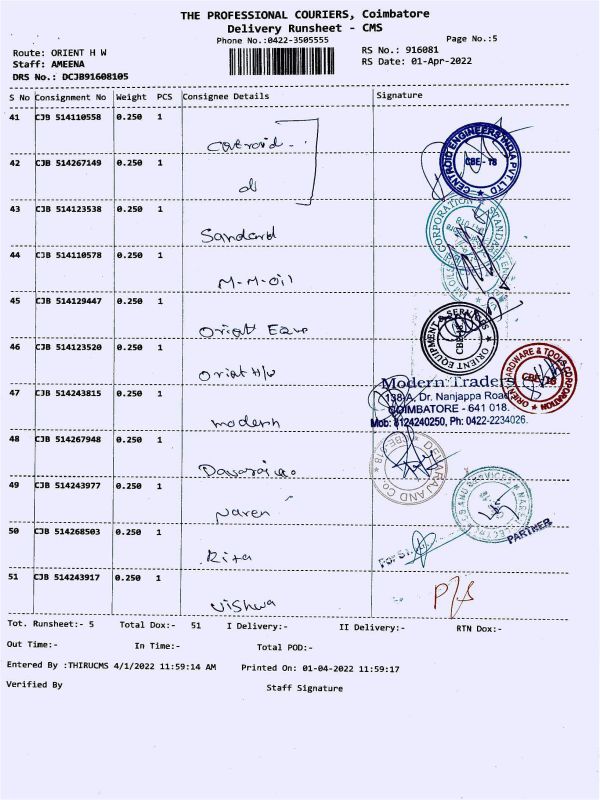 THE PROFESSIONAL COURIERS, Coimbatore
Delivery Runsheet - CMS
Phone No.:0422-3505555
Page No.:5
Route: ORIENT H W
RS No.: 916081
Staff: AMEENA
RS Date: 01-Apr-2022
DRS No.: DCJB91608105
S No Consignment No Weight PCS Consignee Details Signature
41 CJB 514110558 0.250 1
CENTROID ENGINEERS INDIA PVT. LTD
CBE - 18
42 CJB 514267149 0.250 1
do
43 CJB 514123538 0.250 1
Sandard
44 CJB 514110578 0.250 1
M-M-Oil
45 CJB 514129447 0.250 1
Orient Equp
ORIENT EQUIPMENT & SERVICES
46 CJB 514123520 0.250 1
Orient H/W
HARDWARE & TOOLS CORPORATION
CBE-18
47 CJB 514243815 0.250 1
modern
Modern Traders
138-A, Dr. Nanjappa Road
COIMBATORE - 641 018.
Mob: 8124240250, Ph: 0422-2234026.
48 CJB 514267948 0.250 1
DEVARAJ AND CO.
49 CJB 514243977 0.250 1
Naren
PARTNER
50 CJB 514268503 0.250 1
Rita
51 CJB 514243917 0.250 1
Vishwa
Tot. Runsheet:- 5 Total Dox:- 51 I Delivery:- II Delivery:- RTN Dox:-
Out Time:- In Time:- Total POD:-
Entered By :THIRUCMS 4/1/2022 11:59:14 AM Printed On: 01-04-2022 11:59:17
Verified By Staff Signature